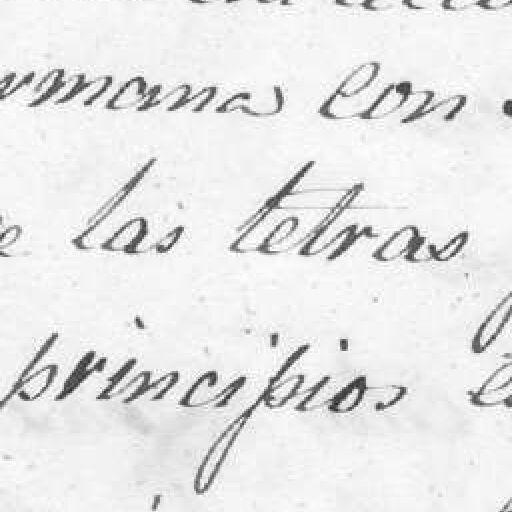 rmana con
e las tetras
principios e